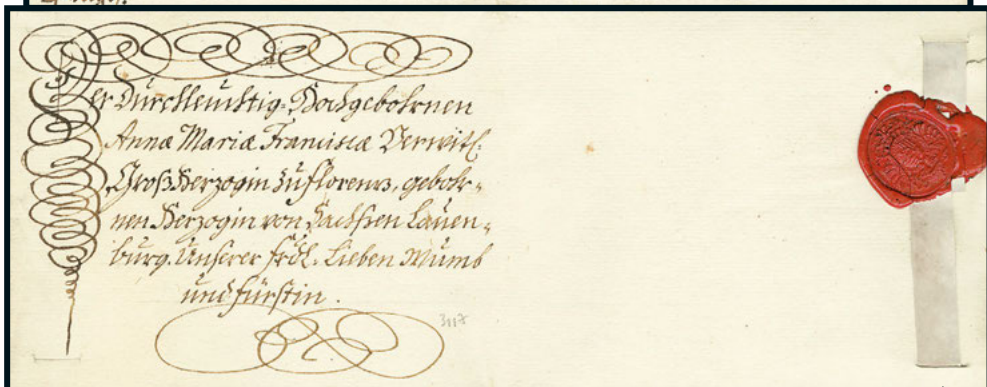 Der Durchleuchtig-Hochgebohrnen
Annæ Mariæ Franciscæ Verwitt:
GroßHerzogin zu Florenz, gebohr-
nen Herzogin von Sachßen Lauen-
burg. Unserer frdl. Lieben Mumb
und fürstin.
3117